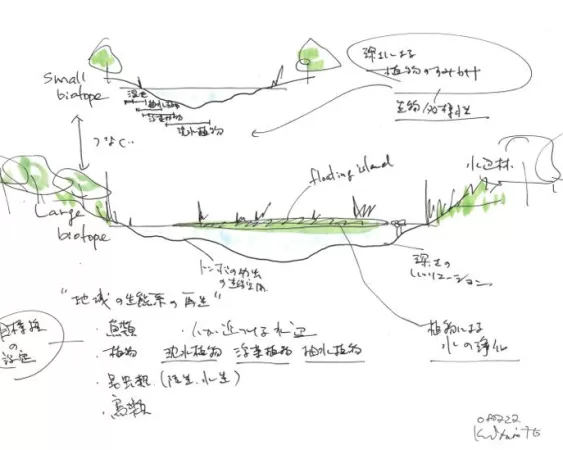 Small
biotope
深さによる
植物のすみわけ
生物多様性
湿生
抽水植物
浮葉植物
沈水植物
つなぐ
水辺林
floating island
Large
biotope
深さの
バリエーション
"地域の生態系の再生"
目標種
の
設定
・鳥類
・人が近づける水辺
・植物 沈水植物 浮葉植物 抽水植物
・昆虫類 (陸生、水生)
・鳥類
植物による
水の浄化
080222